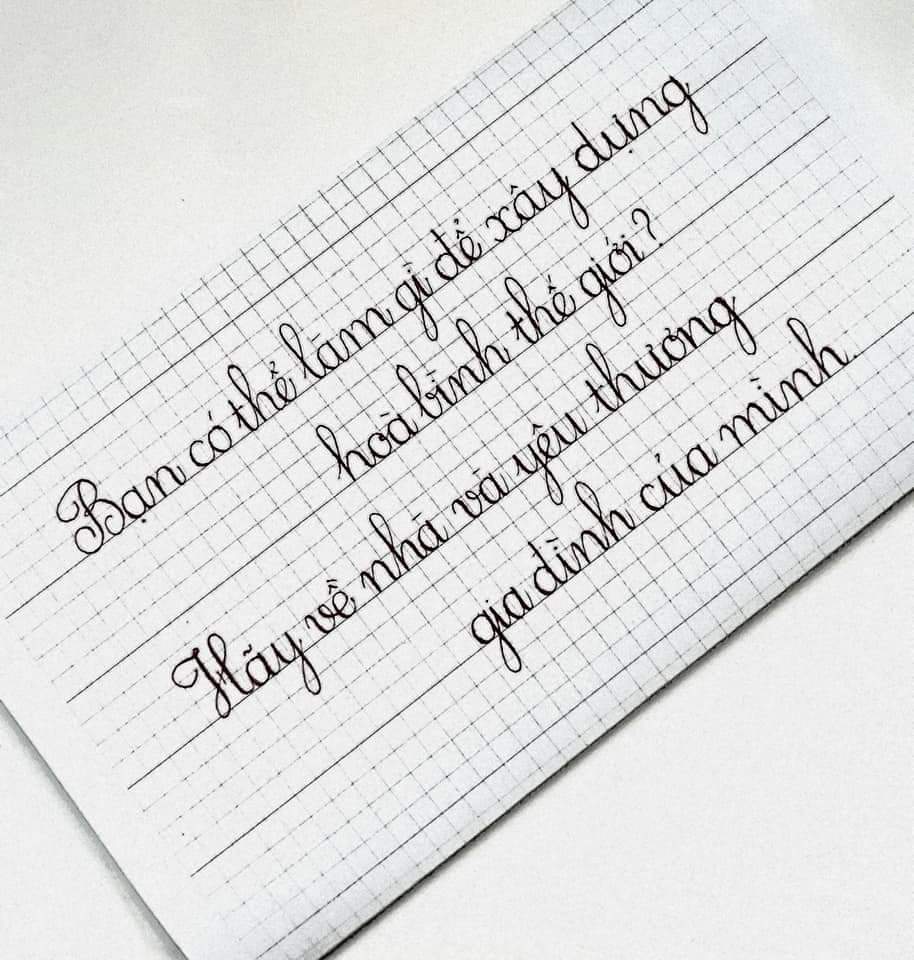 Bạn có thể làm gì để xây dựng
hoà bình thế giới?
Hãy về nhà và yêu thương
gia đình của mình.